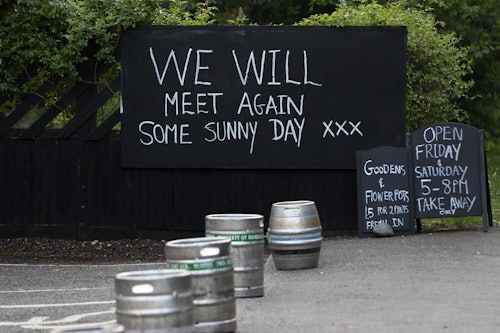 WE WILL
MEET AGAIN
SOME SUNNY DAY xxx
GOODENS
&
FLOWERPOTS
£5 FOR 2 PINTS
FRESH IN
OPEN
FRIDAY
&
SATURDAY
5-8PM
TAKE AWAY
ONLY
PROPERTY OF